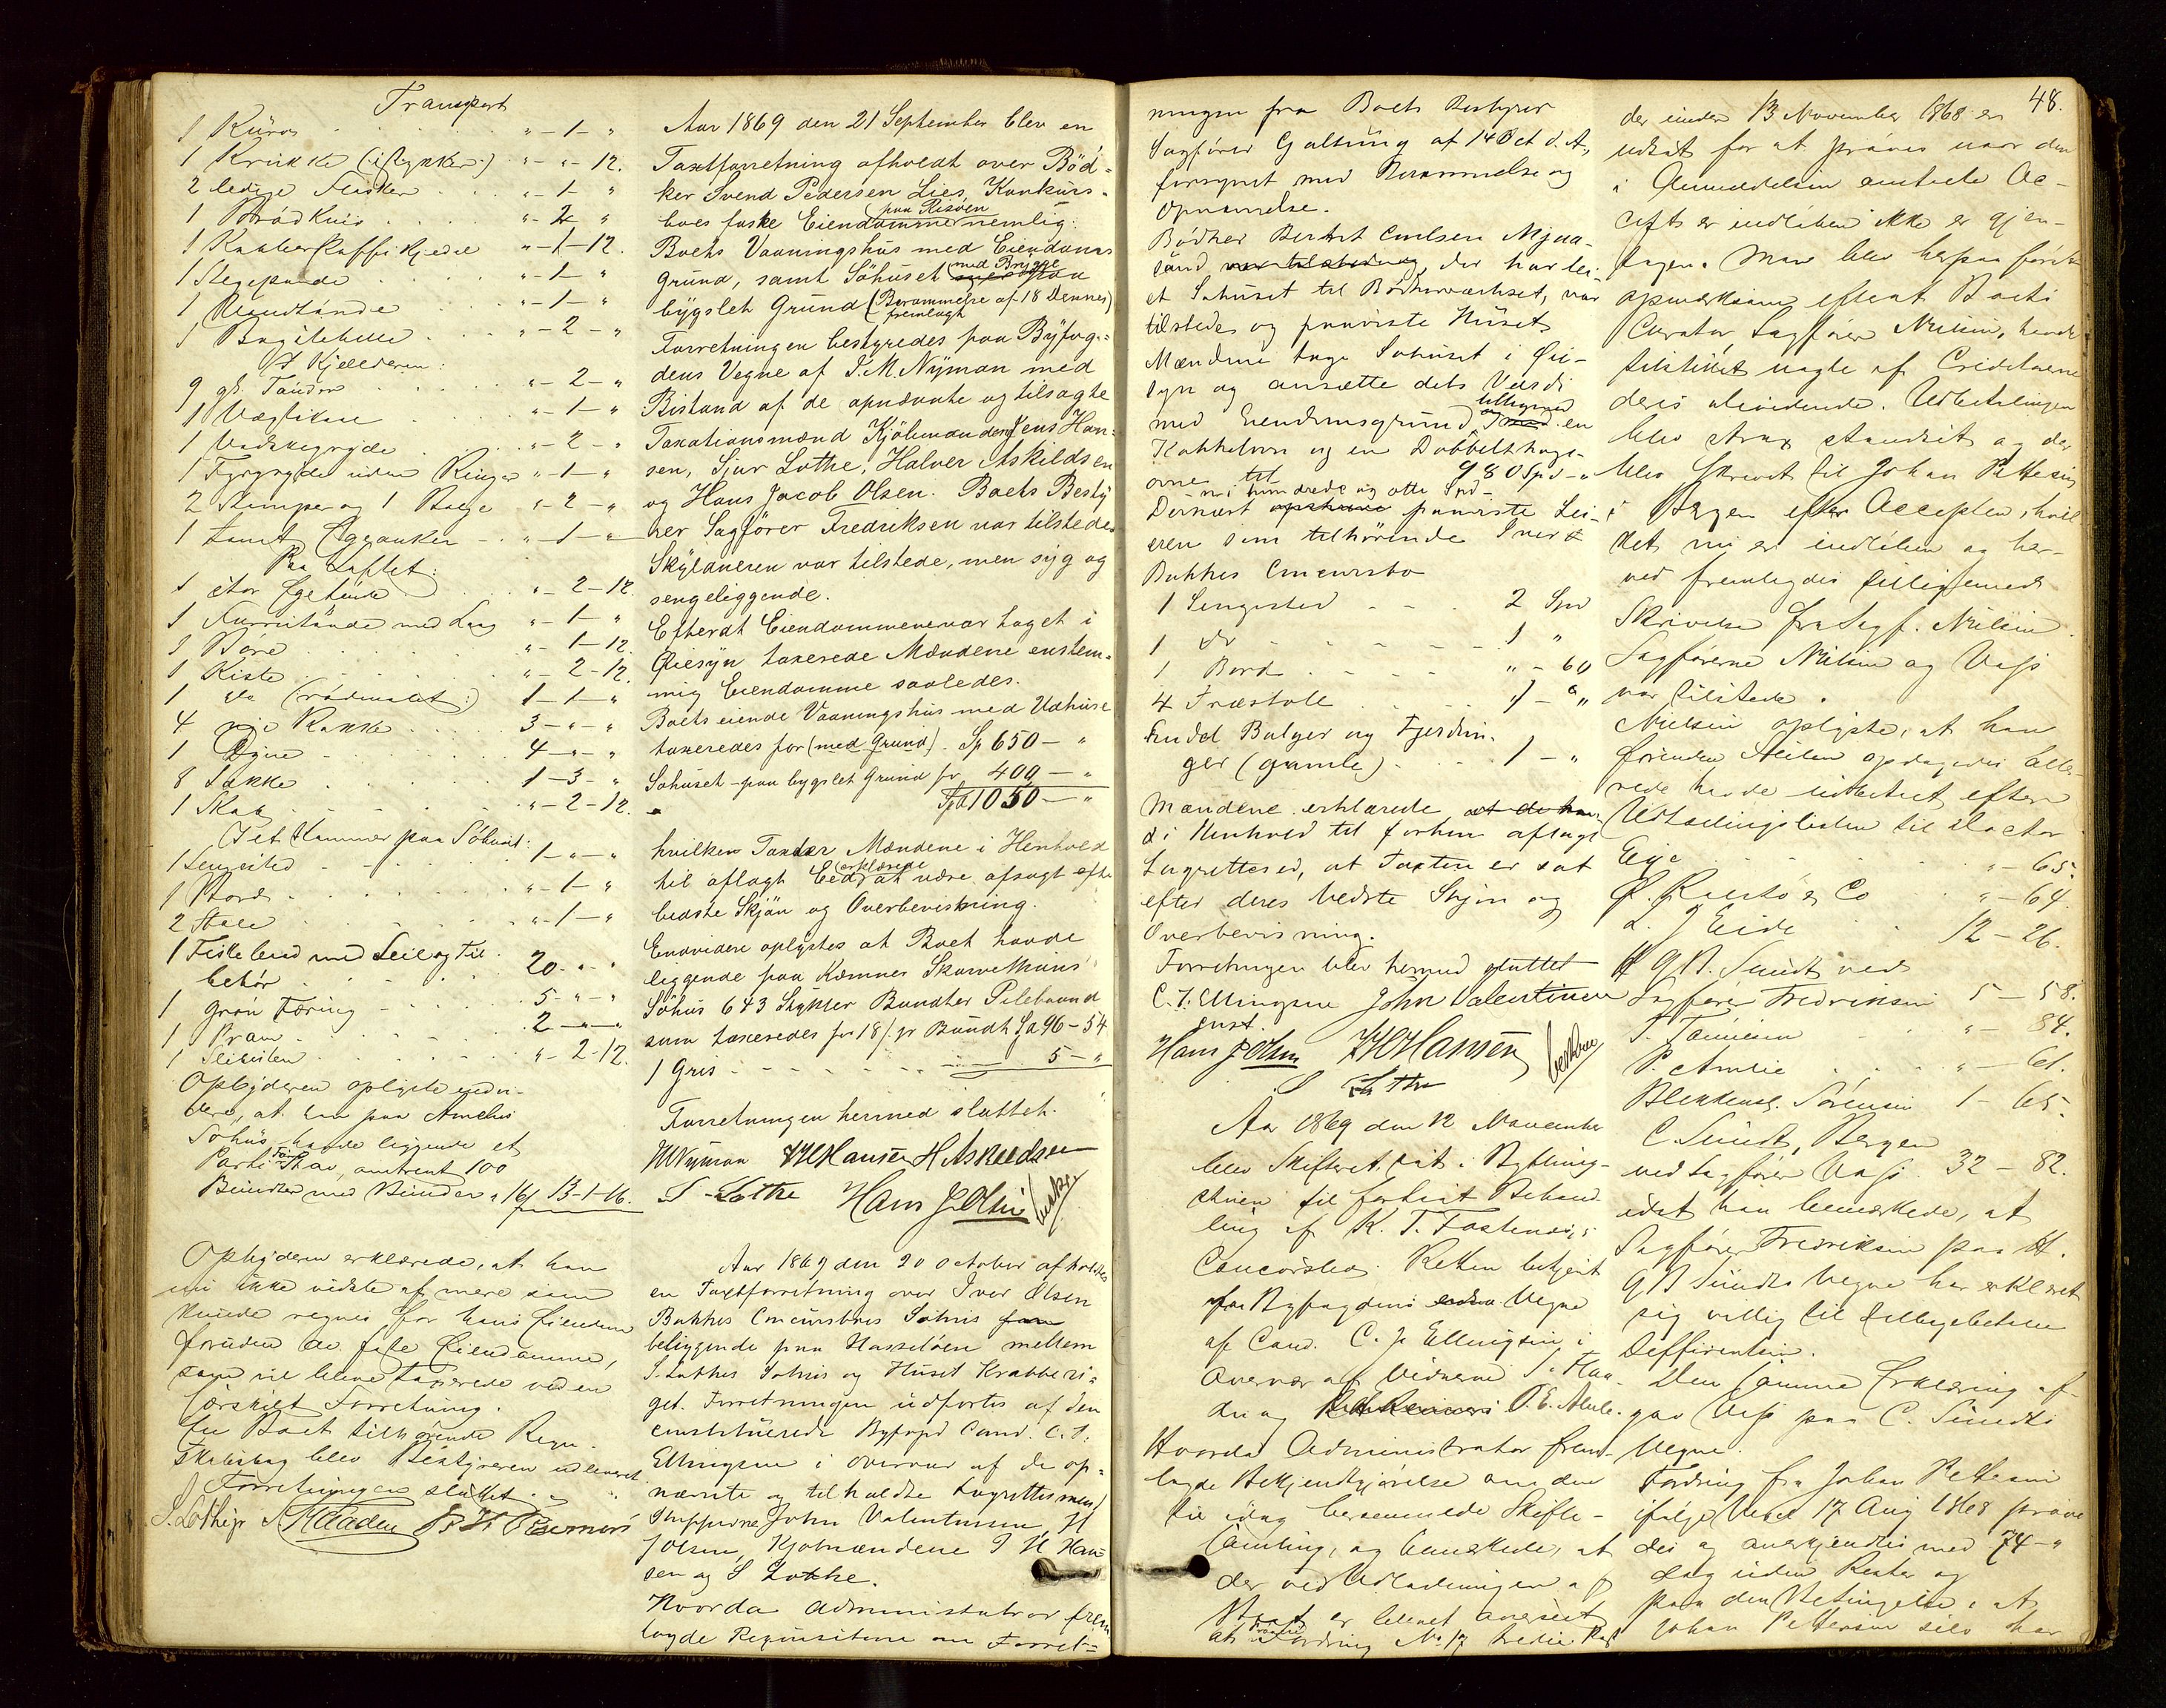 Transport
1 Kurv " - 1 - "
1 Krukke (i Stykker:) " - " - 12.
2 ledige Flasker " - 1 - "
1 Brödkniv " - 2 "
1 Kobber Kaffekjedel " - 1 - 12.
1 Stegepande " - 1 - "
1 Vandtönde " - 1 - "
1 " - 2 - "
I Kjelderen:
9 gl. Tönder " - 2 - "
1 " - 1 - "
1 Vadskegryde " - 2 - "
1 Fyrgryde uden Ringer " - 1 - "
2 Stamper og 1 Balje " - 2 - "
1 tomt " - 1 - "
Paa Loftet:
1 stor Egetönde " - 2 - 12.
1 Furretönde med Laag " - 1 - "
3 " - 1 - 12.
1 Kiste " - 2 - 12.
1 do (rödmalet:) 1 - 1 - "
4 nye 3 - " - "
1 Dyne 4 - " - "
8 Sække 1 - 3 - "
1 Skab " - 2 - 12.
I et Kammer paa Söhuset:
1 Sengested 1 - " - "
1 Bord " - 1 - "
2 Stole " - 1 - "
1 med Seil og Til-
behör 20 - " - "
1 grön Færing 5 - " - "
1 Pram 2 - " - "
1 " - 2 - 12.
Opbyderen oplyste endvi-
dere, at han paa
Söhus havde liggende et
Parti omtrent 100
Bundter med Bunder a 16/ 13-1-16.
Opbyderen erklærede, at han
nu ikke vidste af mere som
kunde regnes for hans Eiendom
foruden de faste Eiendomme,
som vil blive taxerede ved en
særskilt Forretning.
En Boet tilhörende Regn-
skabsbog blev Bestyreren udleveret.
Forretningen sluttet.
S. Lothe

Aar 1869 den 21 September blev en
Taxtforretning afholdt over Böd-
ker Svend Pedersen Lies Konkurs-
boes faste Eiendomme paa Risöen nemlig:
Boets Vaaningshus med Eiendoms
grund, samt Söhuset med Brygge paa
bygslet Grund (Berammelse af 18 Dennes)
fremlagt
Forretningen bestyredes paa Byfog-
dens Vegne af J. M. Nyman med
Bistand af de opnævnte og tilsagte
Taxationsmænd Kjöbmændene Jens Han-
sen, Sjur Lothe, Halvor Askildsen
og Hans Jacob Olsen. Boets Besty-
rer Sagförer Fredriksen var tilstede
Skyldneren var tilstede, men syg og
sengeliggende.
Efterat Eiendommene var taget i
Öiesyn taxerede Mændene enstem-
mig Eiendomme saaledes.
Boets eiende Vaaningshus med Udhuse
taxeredes for (med Grund). Sp 650 - "
Söhuset paa bygslet Grund for 400 - "
Spd 1050 - "
hvilken Taxter Mændene i Henhold
til aflagt Eed erklærede at være afsagt efter
bedste Skjön og Overbevisning.
Endvidere oplystes at Boet havde
liggende paa Kæmner
Söhus 643 Stykker Bundter Pilebaand
som taxeredes for 18/. pr Bundt Sp 96-54
1 Gris 5 - "
Forretningen hermed sluttet.
JMNyman JHHansen H Askildsen
S. Lothe Hans J Olsen

Aar 1869 den 20 October afholdtes
en Taxtforretning over Iver Olsen
Bakkes Concursboes Söhus
beliggende paa Hasselöen mellem
S. Lothes Söhus og Huset Krabberi-
get. Forretningen udförtes af den
constituerede Byfoged Cand. C. J.
Ellingsen i Overvær af de op-
nævnte og tilholdte Lagrettesmænd
Skipperne John Valentinsen, H
J Olsen, Kjöbmændene J H Han-
sen og S Lothe.
Hvorda Administrator frem-
lagde Requisitionen om Forret-

ningen fra Boets Bestyrer
Sagförer Galtung af 14 Oct d. A.,
forsynet med Berammelse og
Opnævnelse.
Bödker Berent Carlsen Mjaa-
sund der har lei-
et Söhuset til Bödkerværksted, var
tilstede og paaviste Huset.
Mændene toge Söhuset i Öie-
syn og ansætte dets Værdi
med Eiendomsgrund, og en
Kakkelovn og en Dobbelthage-
ovne til 980 Spd - "
ni hundrede og otti Spd -
Dernæst paaviste Lei-
eren som tilhörende Iver
Bakkes Concursbo
1 Sengested 2 Spd
1 do 1 "
1 Bord " - 60
4 Træstole 1 - "
Endel Baljer og Fjerdin-
ger (gamle) 1 - "
Mændene erklærede
i Henhold til forhen aflagt
Lagrettesed, at Taxten er sat
efter deres bedste Skjön og
Overbevisning.
Forretningen blev hermed sluttet
C. J. Ellingsen John Valentinsen
const.
Hans J Olsen JHHansen
S Lothe

Aar 1869 den 12 November
blev Skifteret sat i Bything-
stuen til fortsat Behand-
ling af K. T. Fostenæs's
Concursbo. Retten betjent
paa Byfogdens Vegne
af Cand. C. J. Ellingsen i
Overvær af Vidnerne S. Haa-
den og
Hvorda Administrator frem-
lagde Bekjendtgjörelse om den
til idag berammede Skifte-
samling, og bemærkede, at
der ved Udlodningen af
Boet er blevet overseet
at Fordring No 17

48.
der under 13 November 1868 er
udsat for at pröves naar den
i Anmeldelsen omtalte Ac-
cept er indlöben ikke er gjen-
tagen. Man blev herpaa först
opmærksom efterat Boets
Curator, Sagförer Nielsen, havde
tilstillet nogle af Creditorerne
deres Dividende. Udbetalingen
blev strax standset og der
blev skrevet til Johan Pettersen
i Bergen efter Accepten, hvil-
ket nu er indlöben og her-
ved fremlagdes tilligemed
Skrivelse fra Sagf. Nielsen.
Sagförerne Nielsen og
var tilstede.
Nielsen oplyste, at han
förend Feilen opdagedes alle-
rede havde udbetalt efter
Udlodningslisten til Doctor
Eije " - 65.
& Co " - 64.
L. J Eide 12 - 26.
H G B. Sundt ved
Sagförer Fredriksen 5 - 58.
" - 84.
P. " - 61.
Sörensen 1 - 65.
C Sundt, Bergen
ved Sagförer 32 - 82.
idet han bemærkede, at
Sagförer Fredriksen paa H.
G B Sundts Vegne har erklæret
sig villig til tilbagebetale
Differentsen.
Den samme Erklæring af-
gav paa C. Sundts
Vegne.
Fordring fra Johan Pettersen
ifölge Vexel 17 Aug 1868 pröve-
des og anerkjendtes med 74 - "
dog uden Renter og
paa den Betingelse, at
Johan Pettersen selv har